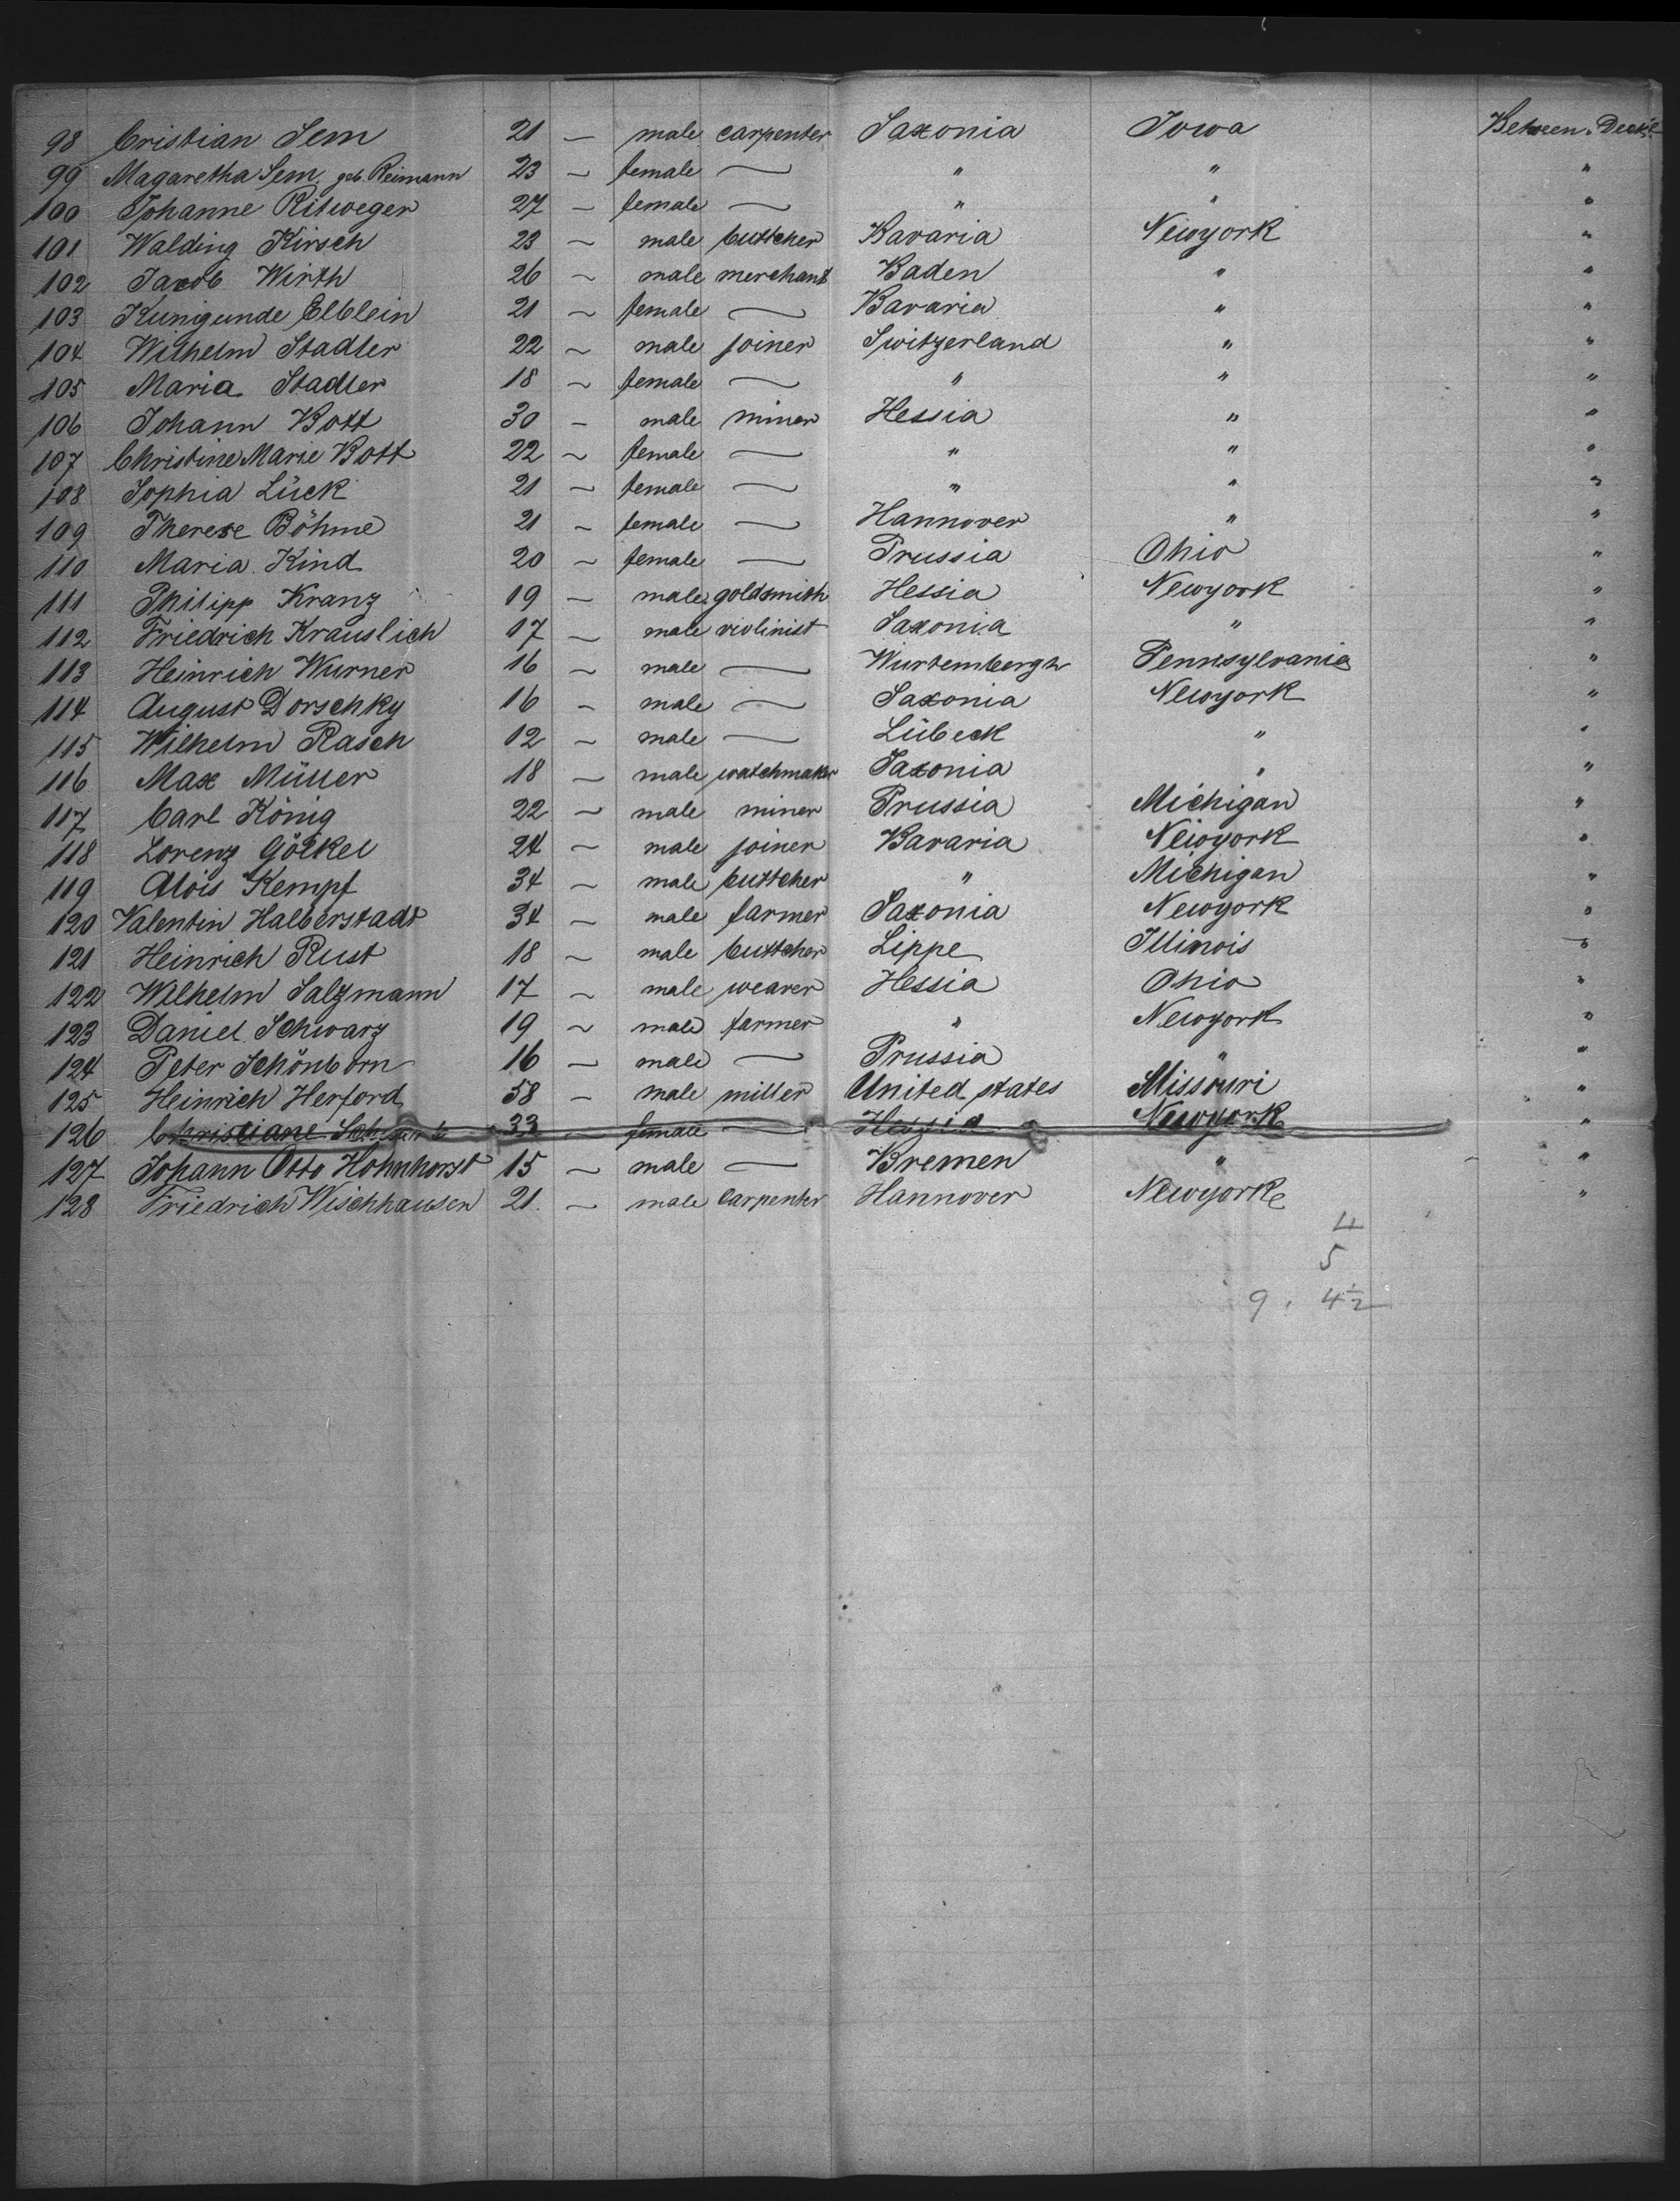 98 Cristian Sem 21 — male carpenter Saxonia Iowa Between Deck
99 Magaretha Sem geb. Reimann 23 — female — " " "
100 Johanne Ritweger 27 — female — " " "
101 Walding Kirsch 23 — male buttcher Bavaria Newyork "
102 Jacob Wirth 26 — male merchant Baden " "
103 Kunigunde Elblein 21 — female — Bavaria " "
104 Wilhelm Stadler 22 — male joiner Switzerland " "
105 Maria Stadler 18 — female — " " "
106 Johann Bott 30 — male miner Hessia " "
107 Christine Marie Bott 22 — female — " " "
108 Sophia Lück 21 — female — " " "
109 Therese Böhme 21 — female — Hannover " "
110 Maria Kind 20 — female — Prussia Ohio "
111 Philipp Kranz 19 — male goldsmith Hessia Newyork "
112 Friedrich Krauslich 17 — male violinist Saxonia " "
113 Heinrich Wurner 16 — male — Wurtembergh Pennsylvania "
114 August Dorschky 16 — male — Saxonia Newyork "
115 Wilhelm Rasch 12 — male — Lübeck " "
116 Max Müller 18 — male watchmaker Saxonia " "
117 Carl König 22 — male miner Prussia Michigan "
118 Lorenz Göckel 24 — male joiner Bavaria Newyork "
119 Alois Kempf 34 — male buttcher " Michigan "
120 Valentin Halberstadt 34 — male farmer Saxonia Newyork "
121 Heinrich Rust 18 — male buttcher Lippe Illinois "
122 Wilhelm Salzmann 17 — male weaver Hessia Ohio "
123 Daniel Schwarz 19 — male farmer " Newyork "
124 Peter Schönborn 16 — male — Prussia " "
125 Heinrich Herford 58 — male miller United states Missouri "
126 Christiane 33 — female — Hessia Newyork "
127 Johann Otto Hohnhorst 15 — male — Bremen " "
128 Friedrich Wischhausen 21 — male carpenter Hannover Newyork "
4
5
9. 4½